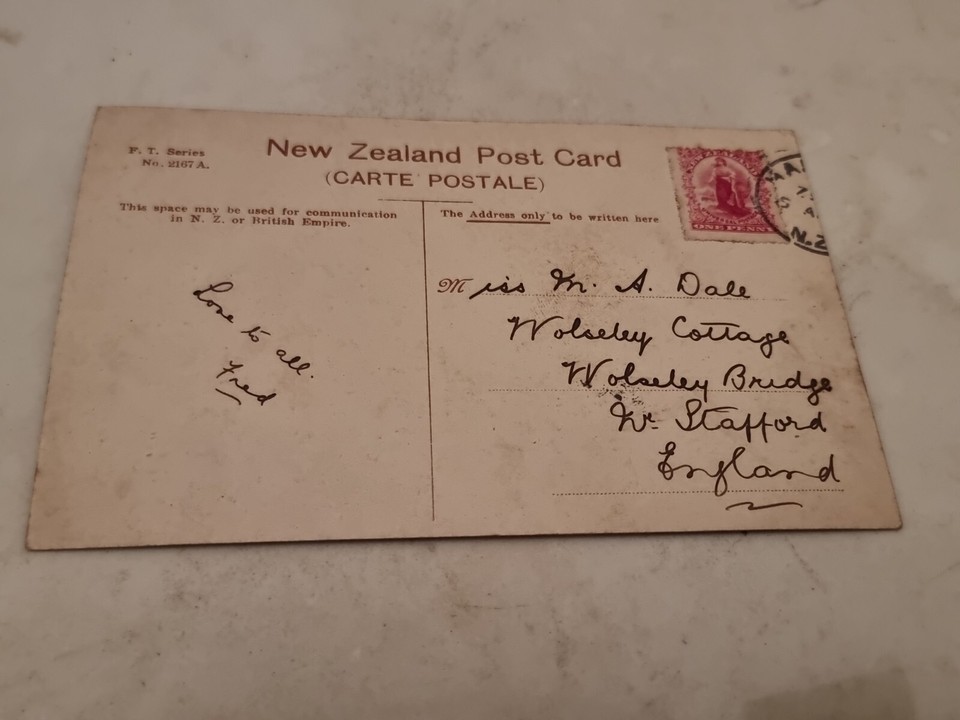 F. T. Series
No. 2167 A.
New Zealand Post Card
(CARTE POSTALE)
This space may be used for communication
in N. Z. or British Empire.
The Address only to be written here
ONE PENNY
N.Z
Love to all.
Fred
Miss M. A. Dale
Wolseley Cottage
Wolseley Bridge
Nr. Stafford
England